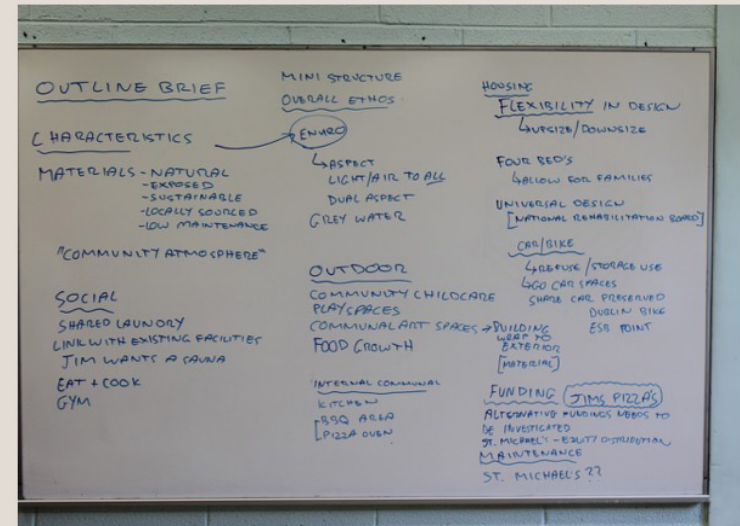 OUTLINE BRIEF
CHARACTERISTICS
MATERIALS - NATURAL
- EXPOSED
- SUSTAINABLE
- LOCALLY SOURCED
- LOW MAINTENANCE
"COMMUNITY ATMOSPHERE"
SOCIAL
SHARED LAUNDRY
LINK WITH EXISTING FACILITIES
JIM WANTS A SAUNA
EAT + COOK
GYM
MINI STRUCTURE
OVERALL ETHOS
ENVIRO
↳ ASPECT
LIGHT/AIR TO ALL
DUAL ASPECT
GREY WATER
OUTDOOR
COMMUNITY CHILDCARE
PLAYSPACES
COMMUNAL ART SPACES → BUILDING
WRAP TO
EXTERIOR
[MATERIAL]
FOOD GROWTH
INTERNAL COMMUNAL
KITCHEN
[BBQ AREA
PIZZA OVEN
HOUSING
FLEXIBILITY IN DESIGN
↳ UPSIZE/DOWNSIZE
FOUR BED'S
↳ ALLOW FOR FAMILIES
UNIVERSAL DESIGN
[NATIONAL REHABILITATION BOARD]
CAR/BIKE
↳ REFUSE/STORAGE USE
↳ GO CAR SPACES
SHARE CAR PRESERVED
DUBLIN BIKE
ESB POINT
FUNDING (JIMS PIZZA'S)
ALTERNATIVE FUNDINGS NEEDS TO
BE INVESTIGATED
ST. MICHAEL'S - EQUITY DISTRIBUTION
MAINTENANCE
ST. MICHAEL'S ??